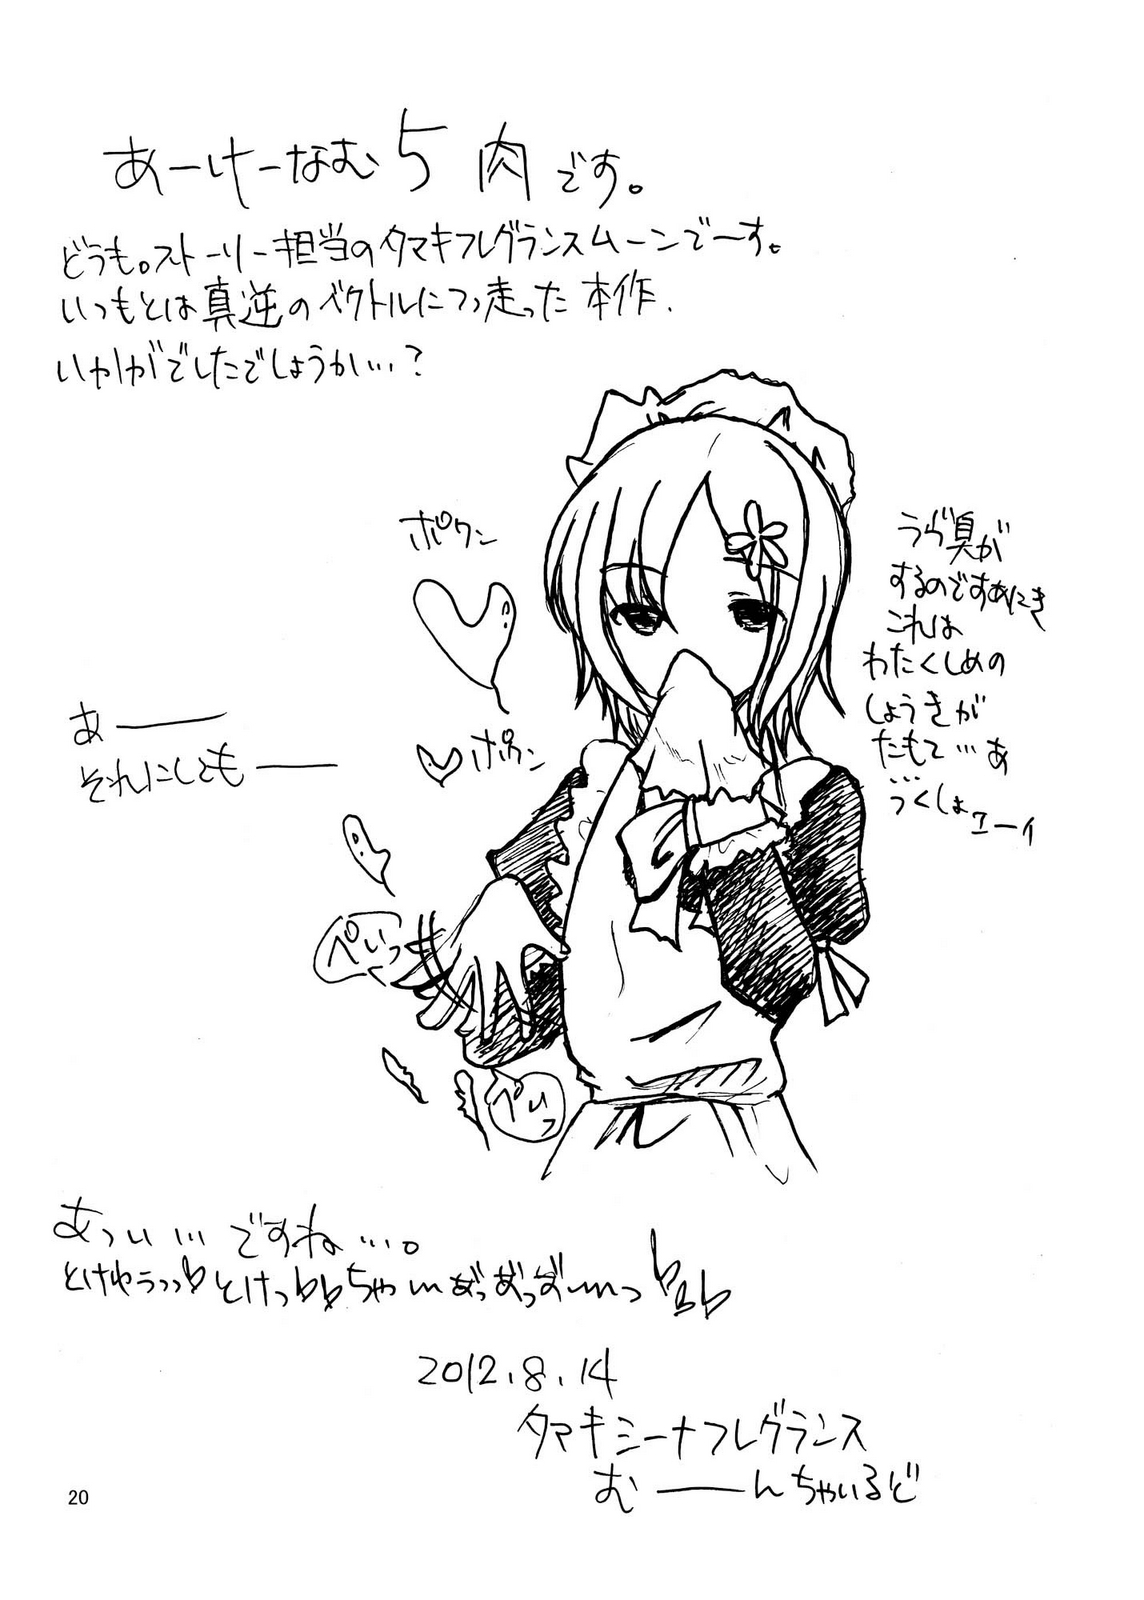 あーけーなむ 5 肉 です。
どうも。ストーリー担当のタマキフレグランスムーンでーす。
いつもとは真逆のベクトルにつっ走った本作、
いかがでしたでしょうか…?
ポワン
ポワン
うら 臭が
するのですあにき
これは
わたくしめの
しょうきが
たもて…あ
…
っくしょ
エーイ
あー
それにしてもー
ぺいっ
ぺいっ
あつい…ですね…。
2012.8.14
タマキミーナフレグランス
むーんちゃいるど
20